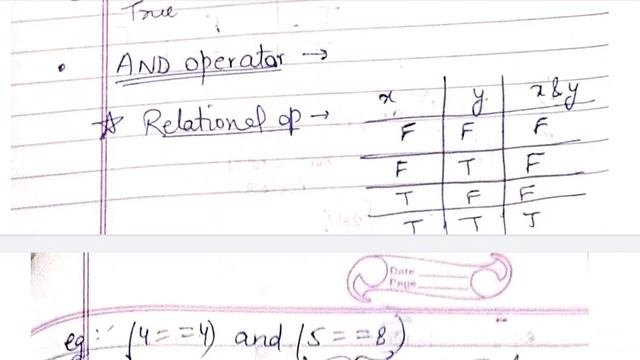 True
• AND operator →
☆ Relational op →
x y x&y
F F F
F T F
T F F
T T T
Date
Page
eg :- (4==4) and (5==8)